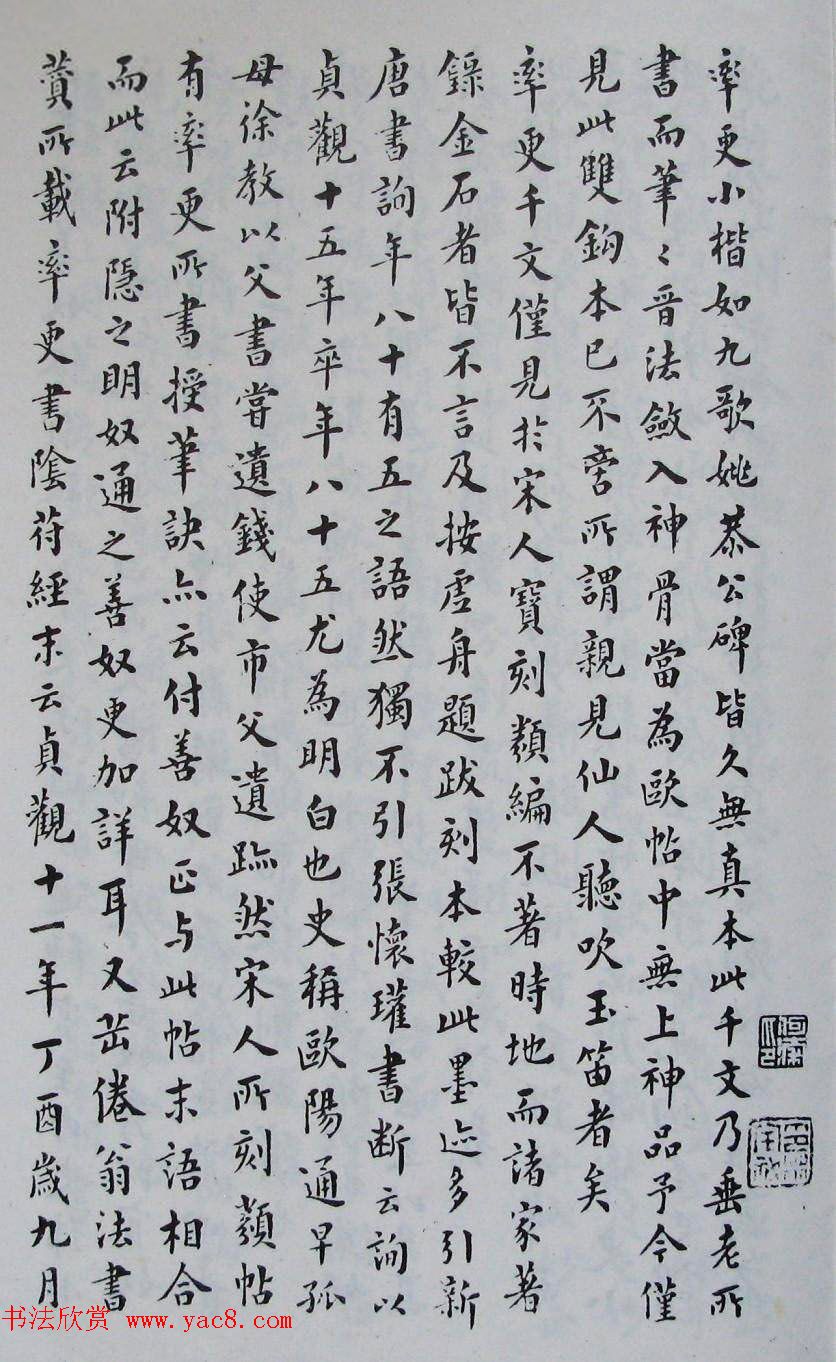 率更小楷如九歌姚恭公碑皆久無真本此千文乃垂老所
書而筆〻晉法斂入神骨當為歐帖中無上神品予今僅
見此雙鉤本已不啻所謂親見仙人聽吹玉笛者矣
率更千文僅見於宋人寶刻類編不著時地而諸家著
錄金石者皆不言及按虛舟題跋刻本較此墨迹多引新
唐書詢年八十有五之語然獨不引張懷瓘書斷云詢以
貞觀十五年卒年八十五尤為明白也史稱歐陽通早孤
母徐教以父書嘗遺錢使市父遺跡然宋人所刻類帖
有率更所書授筆訣亦云付善奴正与此帖末語相合
而此云附隱之明奴通之善奴更加詳耳又岳倦翁法書
贊所載率更書陰符經末云貞觀十一年丁酉歲九月
书法欣赏 www.yac8.com